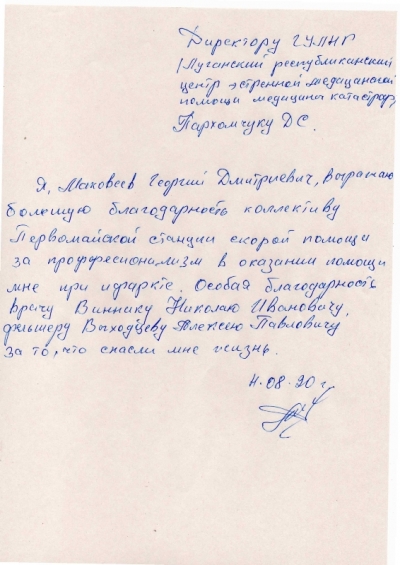 Директору ГУЛНР
/Луганский республиканский
центр эстренной медацинской
помощи медицина катастроф/
Пархомчуку Д С.
Я, Маховеев Георгий Дмитриевич, выражаю
большую благодарность коллективу
Первомайской станции скорой помощи
за профессионализм в оказании помощи
мне при ифаркте. Особая благодарность
врачу Виннику Николаю Ивановичу,
фельшеру Выходцеву Алексею Павловичу
за то, что спасли мне жизнь.
4.08.20 г.